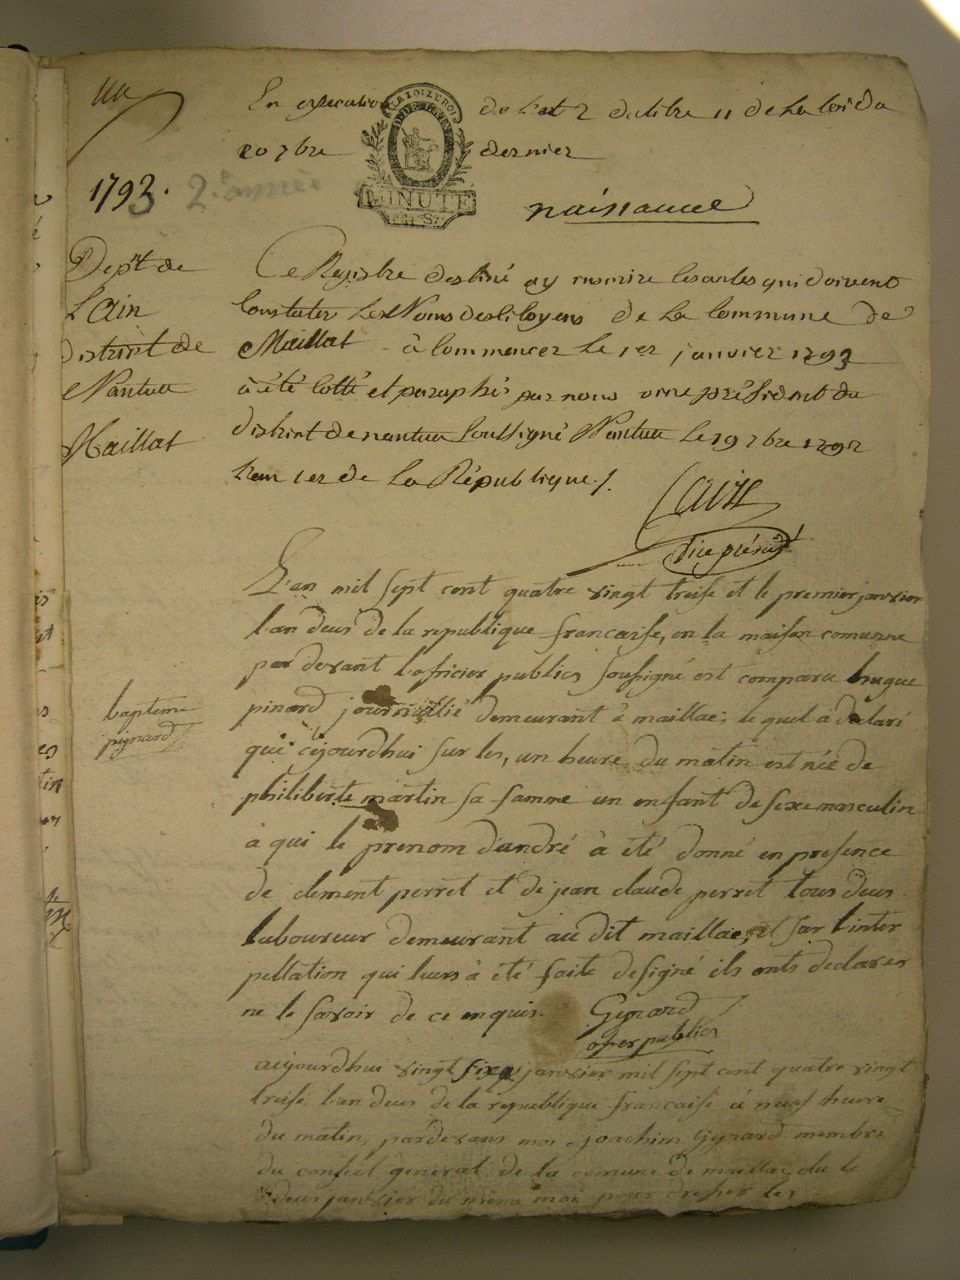 En execution de l'art 2 du titre 11 de la loi du
20 7bre dernier
LA LOI LE ROI
MINUTE
1793. 2e année
naissance
Dep.t de
L'Ain
district de
Nantua
Maillat
Ce Registre destiné a y inscrire les actes qui doivent
Constater Les Noms des Citoyens de La Commune de
Maillat à Commencer Le 1er janvier 1793
à été Cotté et paraphé par nous vice président du
district de nantua Soussigné Nantua Le 19 xbre 1792
L'an 1er de La République./.
vice présid.t
L'an mil sept cent quatre vingt treise et le premier janvier
l'an deus de la republique francaise, en la maison comunne
par devant l'officier publics sousigné est comparu hugue
pinard journallié demeurant à maillac, le quel à delaré
que cejourdhui sur les, un heure du matin est née de
philiberte martin sa famme un enfant de sexe masculin
à qui le prenom d'andré à été donné en presence
de clement perret et de jean claude perret tous deus
laboureur demeurant au dit maillac, et sur l'inter
pellation qui luers à été faite de signé ils onts declarer
ne le savoir de ce enquis. Gynard
offier publics
bapteme
pignard
aujourdhui vingt six janvier mil sept cent quatre vingt
treise l'an deus de la republique francaise à neuf heure
du matin, pardevans moi Joachim Gynard membre
du conseil general de la comune de maillac, élu le
deus janvier du meme moi pour dresser les